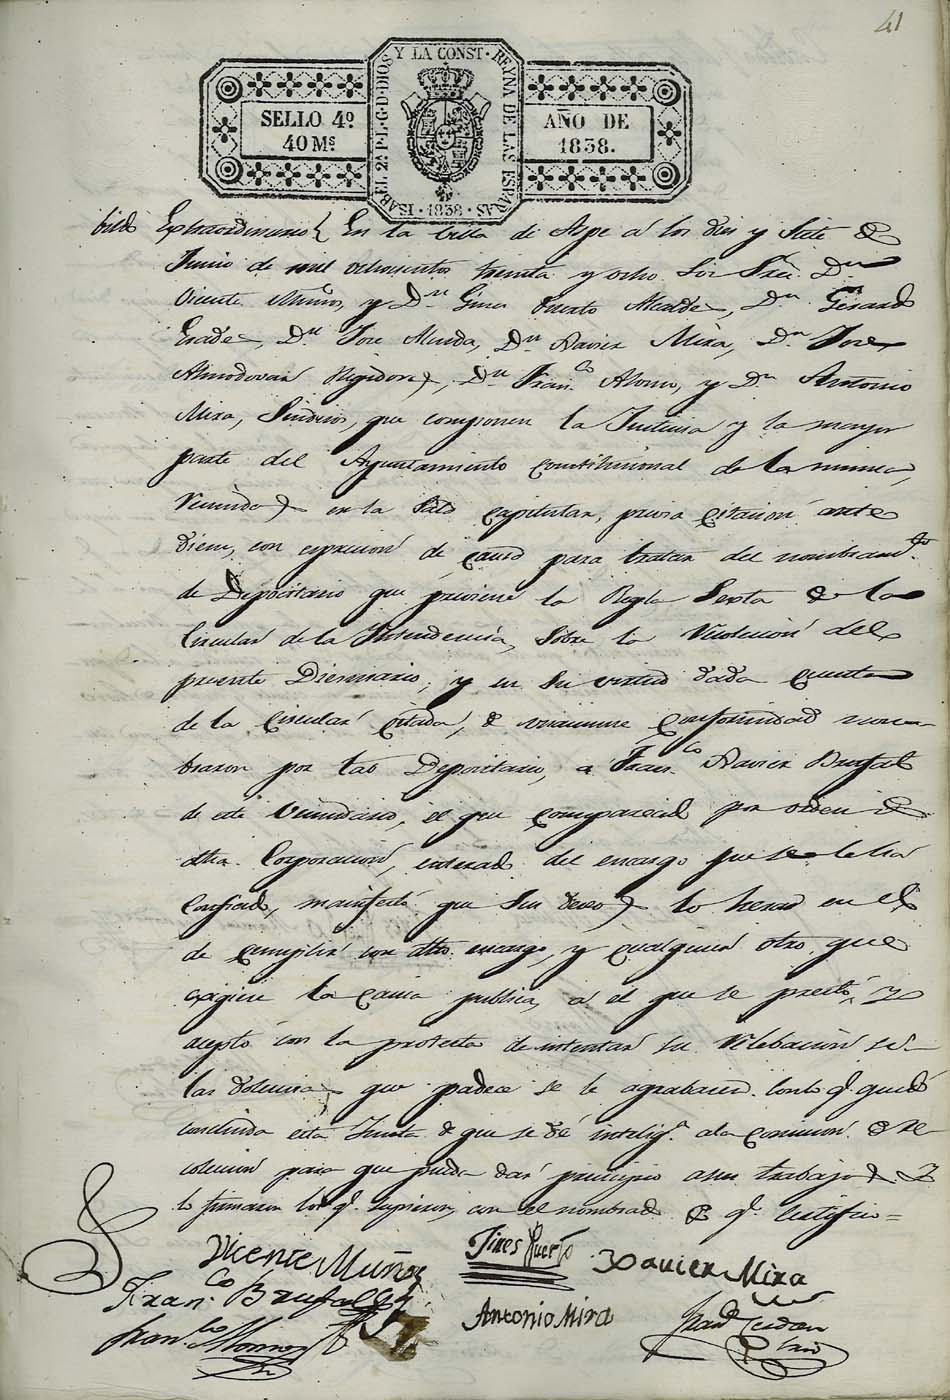 41
SELLO 4º
40 Mˢ
ISABEL 2ª P. L. G. D. DIOS Y LA CONST. REYNA DE LAS ESPAÑAS
1838
AÑO DE
1838.
bildo Extraordinario En la villa de Aspe á los dies y siete de
Junio de mil ochocientos treinta y ocho. Los Sres. Dn
Vicente Muños, y Dn Gines Puerto Alcaldes, Dn Gerardo
Dn Jose Dn Xavier Mira, Dn Jose
Almodovar Regidores, Dn Franco Alonso, y Dn Antonio
Mira, Sindicos, que componen la Justicia y la mayor
parte del Ayuntamiento constitucional de la misma,
reunidos en la Sala capitular, previa citacion ante
diem, con expresion de causa para tratar del nombramto
de Depocitario que previene la Regla Sexta de la
Circular de la Intendencia, sobre la recolecion del
presente Diesmario; y en su virtud dada cuenta
de la circular citada, de unanime conformidad nom-
braron por tal Depocitario, a Franco Xavier Brufal
de este vecindario, el que comparecido por orden de
dha. Corporacion, enterado del encargo que se le há
confiado, manifestó que sus deseos lo heran en el
de cumplir con dho. encargo, y cualquier otro que
exigiese la causa publica, á el que se prestó, y
aceptó con la protesta de intentar su relebacion si
las dolencias que padece se le agrabasen. Con lo q. quedó
concluida esta Junta de que se dé intelig.ª a la comision de re-
colecion para que pueda dar principio a sus trabajos. Y
lo firmaron los q. supieron, con el nombrado de q. certifico=
Vicente Muñoz
Jines Puerto
Xavier Mira
Franco Brufal
Antonio Mira
Franco Alonso